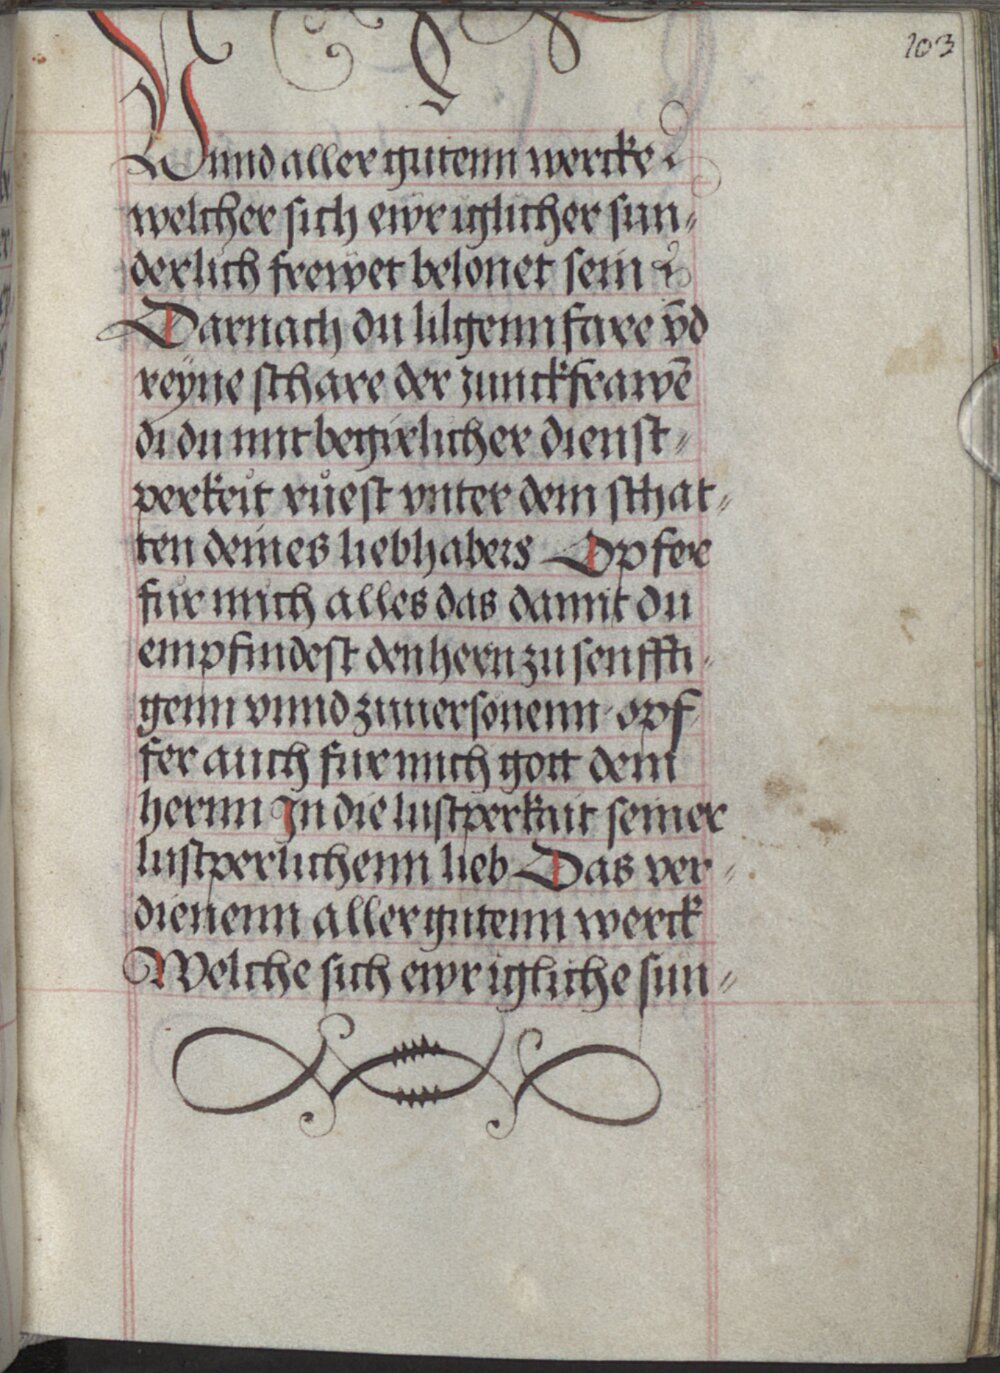 103
Vnnd aller gutenn wercke
welcher sich ewr iglicher sun„
derlich frewet belonet sein
Darnach du lilgenn fare vn̄d
reÿne schare der Junckfrawē
di du mit begirlicher dienst„
perkeit růest vnter dem schat„
ten deines liebhabers Opfere
fur mich alles das damit du
empfindest den hern zu senffti„
genn vnnd zuuersonenn opf„
fer auch fur mich gott dem
hernn In die lustperkait seiner
lustperlichenn lieb Das ver„
dienenn aller gutenn werck
Welche sich ewr igliche sun„